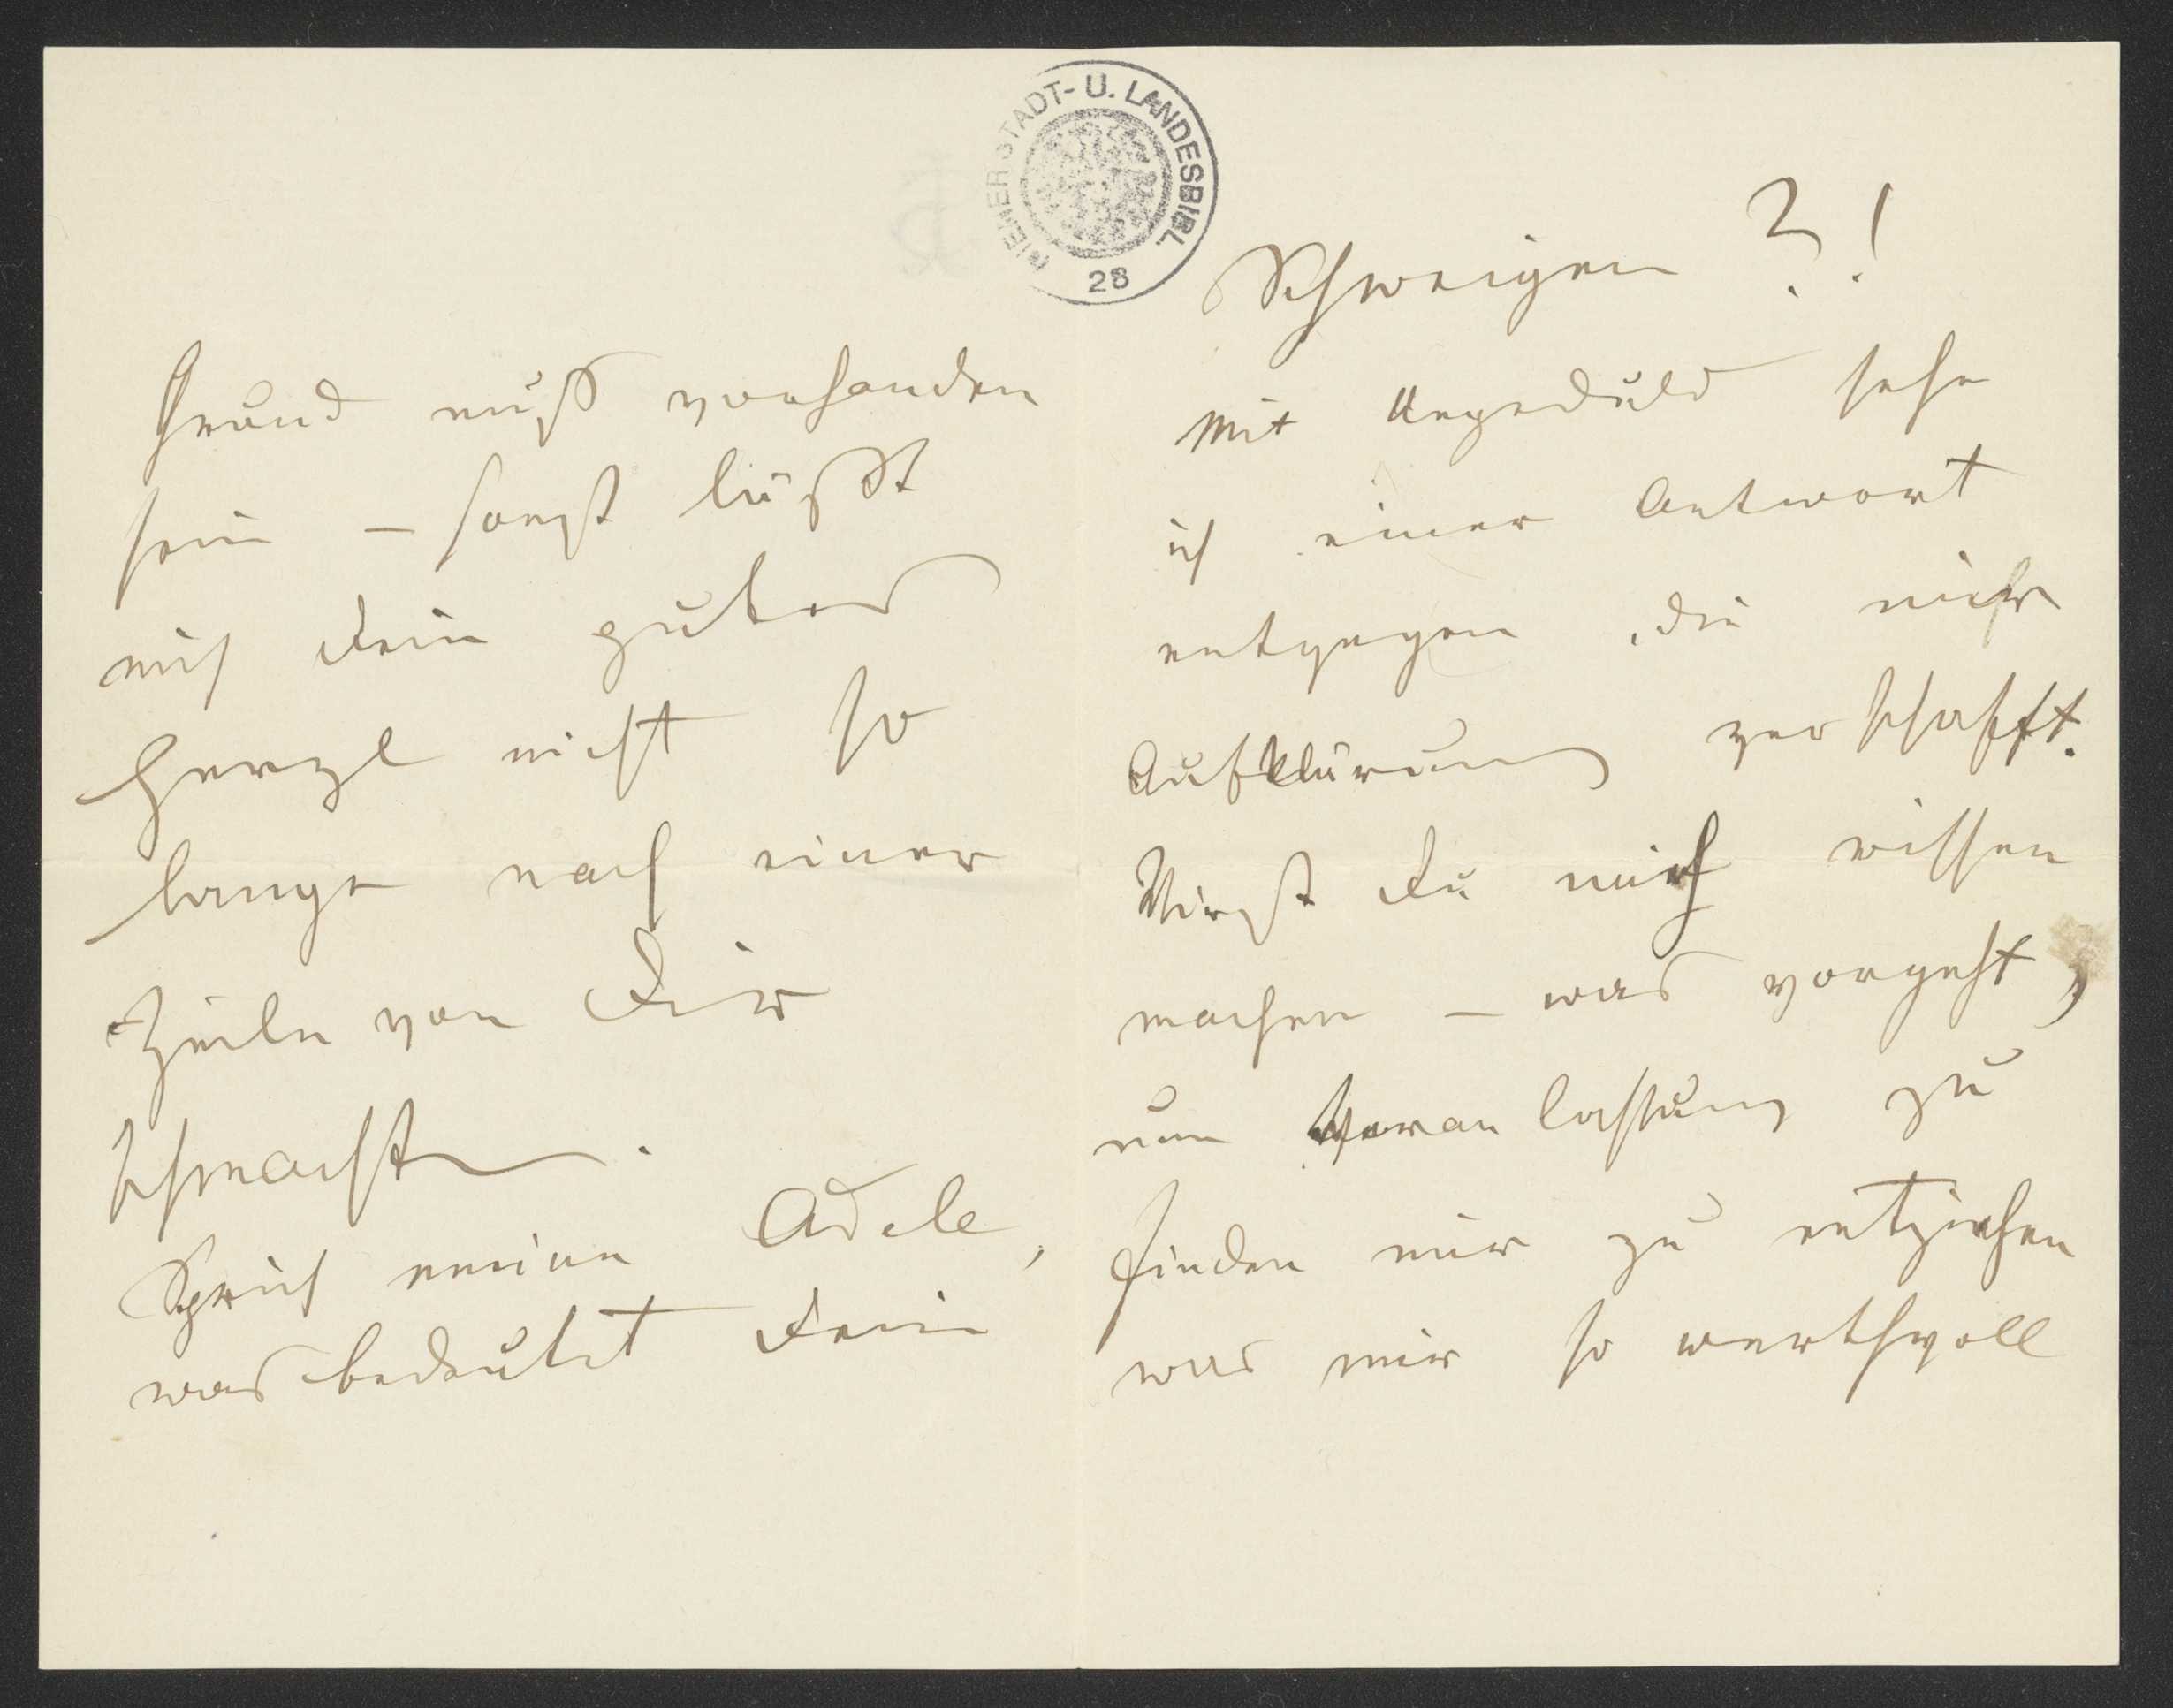 Grund muß vorhanden
sein – sonst läßt
mich Dein gutes
Herzl nicht so
lange nach einer
Zeile von Dir
schmachten.
Sprich meine Adele,
was bedeutet Dein
WIENER STADT- U. LANDESBIBL.
28
Schweigen ?!
Mit Ungeduld sehe
ich einer Antwort
entgegen, die mir
Aufklärung verschafft.
Wirst Du mich wissen
machen – was vorgeht,
um Veranlassung zu
finden mir zu entziehen
was mir so werthvoll